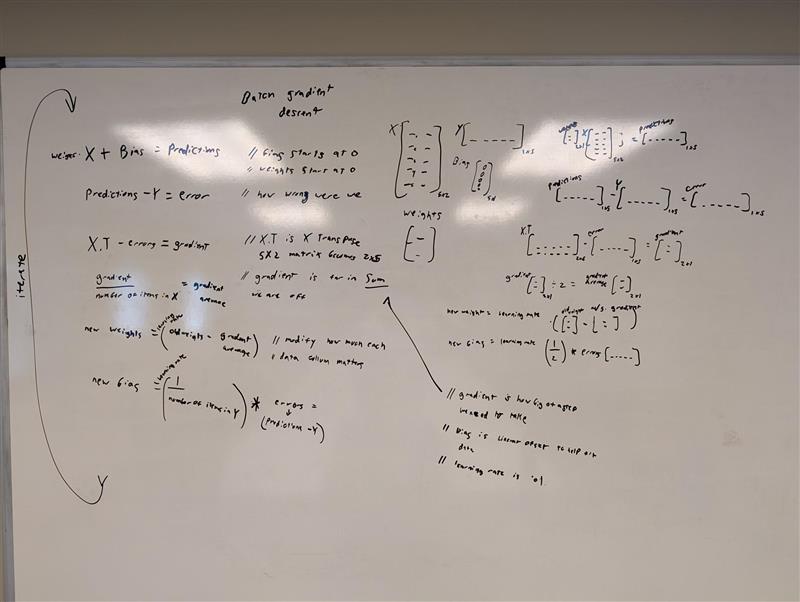 Batch gradient
descent
weights · X + Bias = Predictions // bias starts at 0
// weights start at 0
Predictions - Y = error // how wrong were we
X.T - errors = gradient // X.T is X Transpose
5X2 matrix becomes 2x5
gradient
number of items in X
= gradient
average
// gradient is far in Sum
we are off
new weights = learning rate (old weights - gradient
average) // modify how much each
// data collum matters
new bias = learning rate (1
number of items in Y) * errors =
(prediction - Y)
iterate
X 5x2
Y [-----] 1x5
Bias [0 0 0 0 0]
weights
weights 2x1 X 5x2 = predictions [-----] 1x5
predictions [-----] 1x5 - Y [-----] 1x5 = error [-----] 1x5
X.T [-----] 2x5 - error [-----] 1x5 = gradient 2x1
gradient 2x1 ÷ 2 = gradient average 2x1
new weight = learning rate
new bias = learning rate (1/2) * errors [-----]
// gradient is how big of a step
we need to take
// Bias is linear offset to help
data
// learning rate is .01